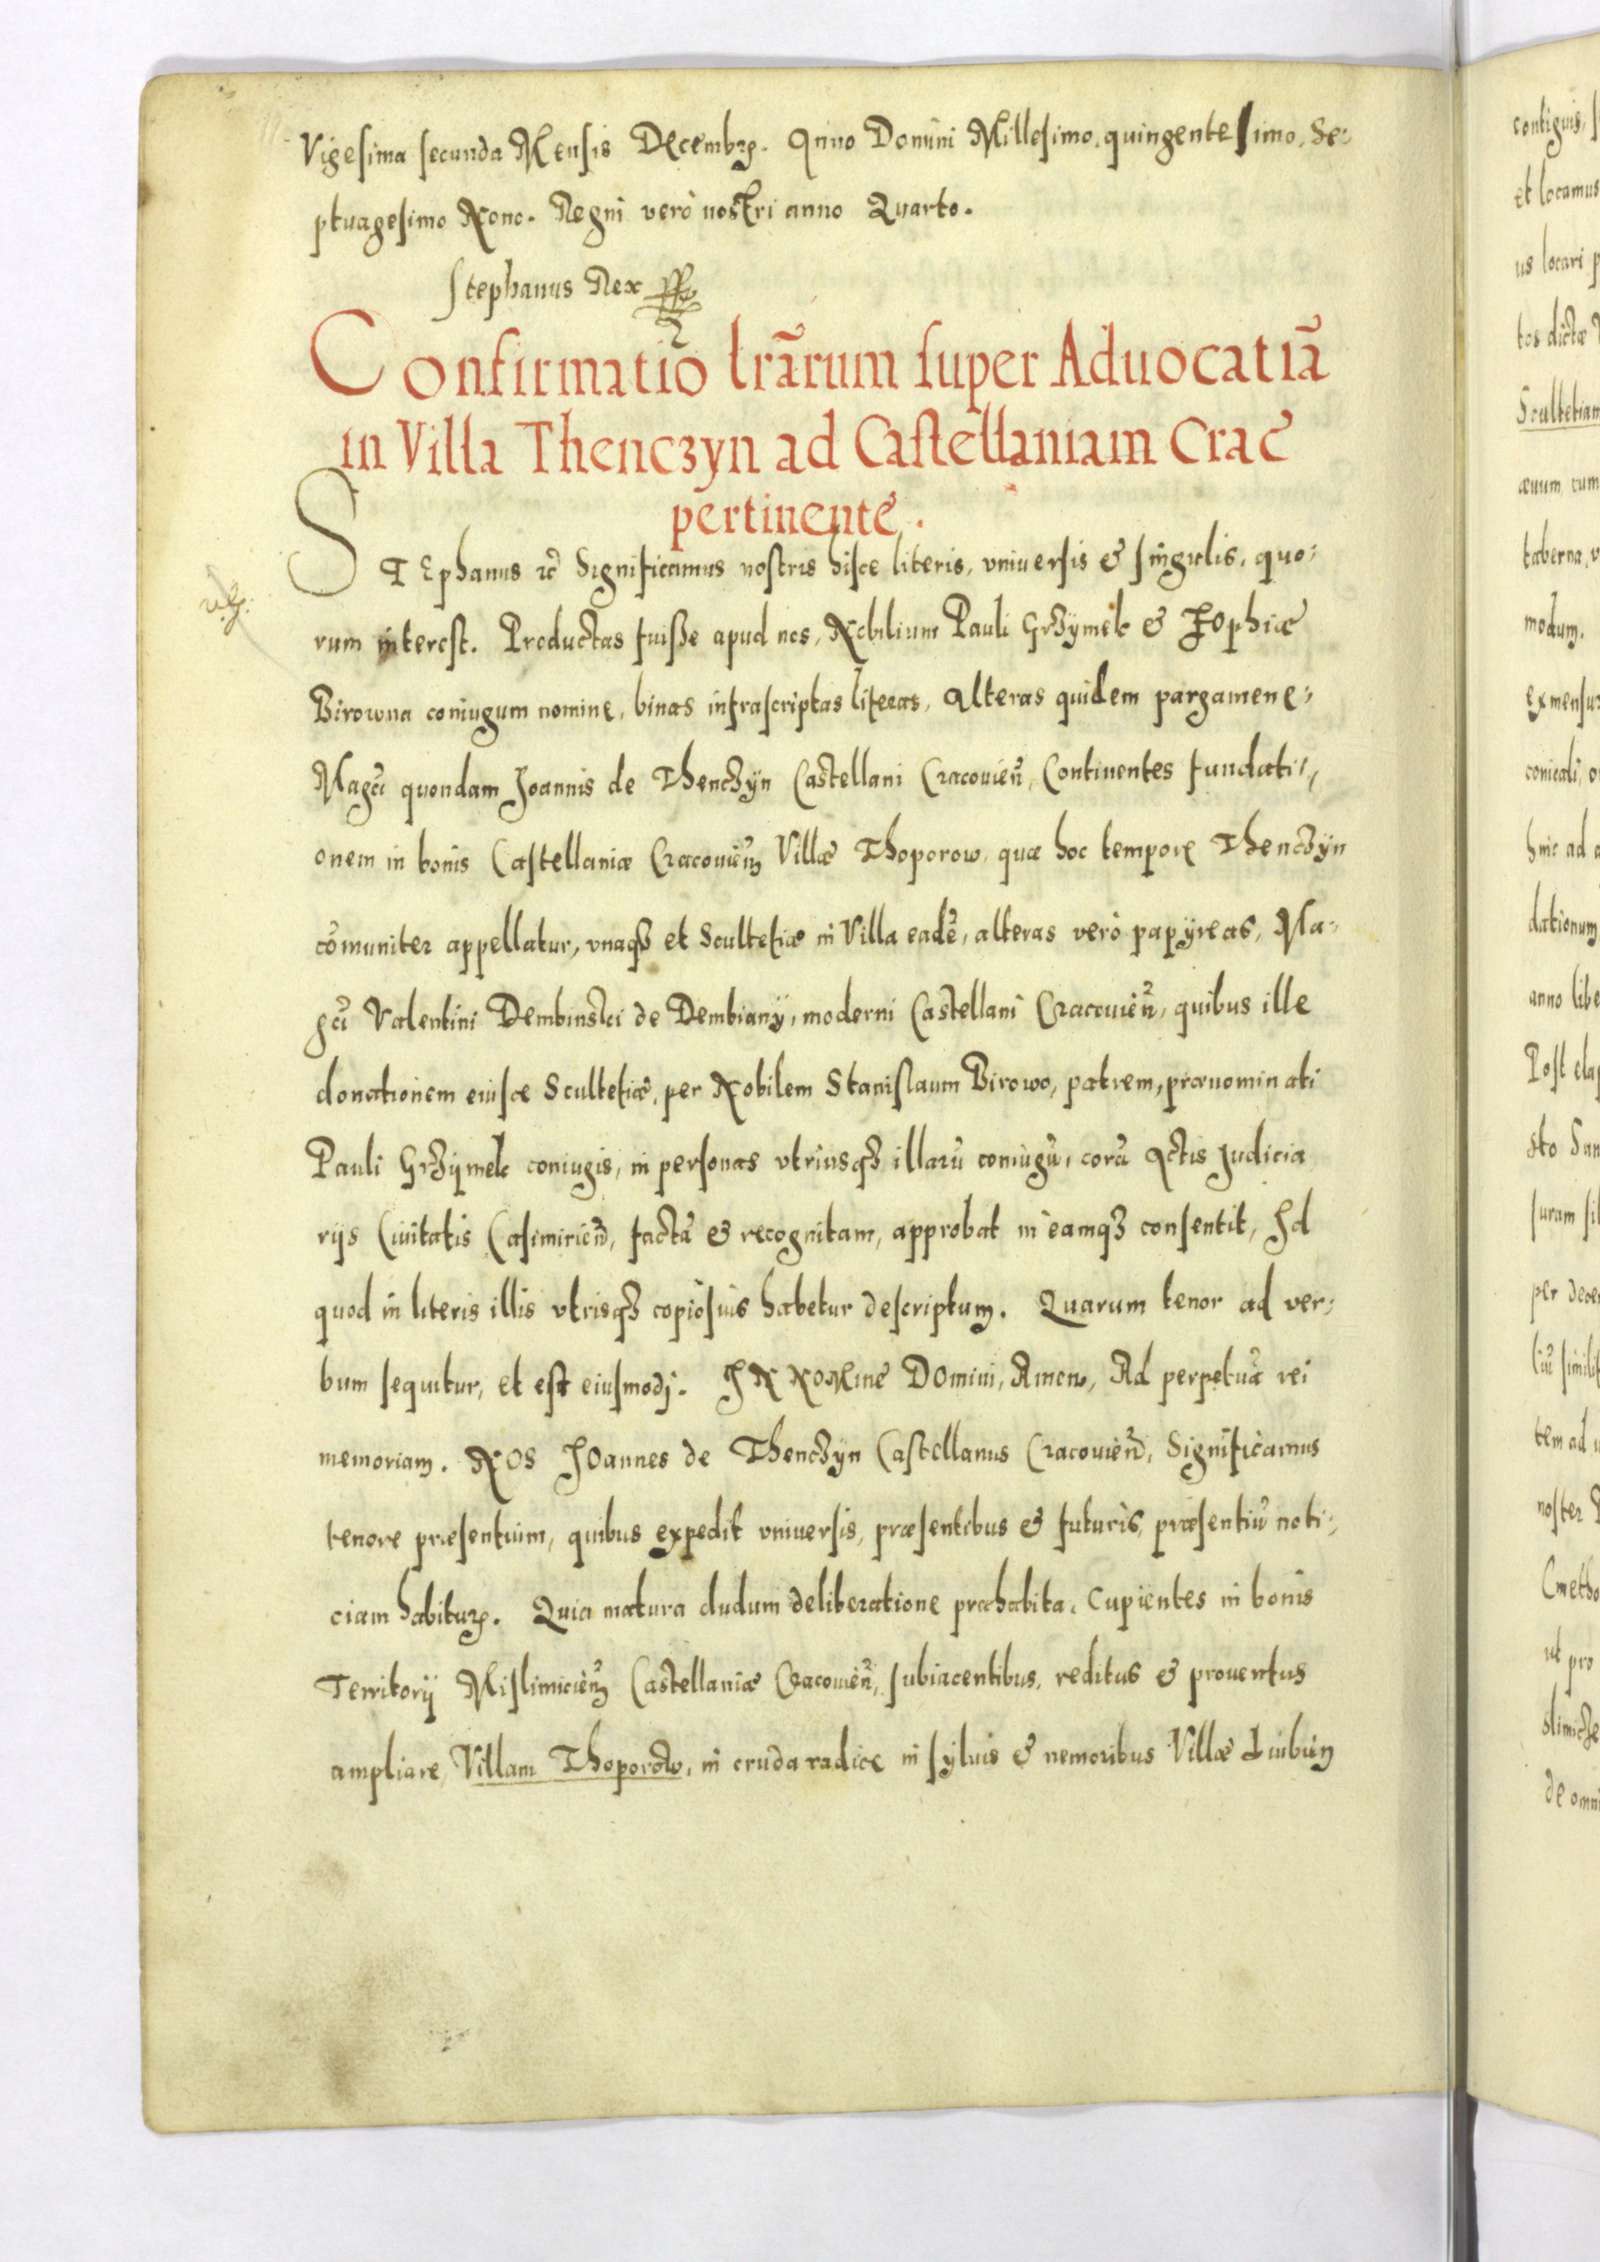 Vigesima secunda Mensis Decembrꝭ. Anno Domini Millesimo, quingentesimo, Se-
ptuagesimo Nono. Regni verò nostri anno Quarto.
Stephanus Rex
Confirmatio lrārum super Aduocatiā
in Villa Thenczyn ad Castellaniam Crac̄
pertinentē.
STEphanus &c̄ Significamus nostris hisce literis, vniuersis & singulis, quo-
rum interest. Productas fuisse apud nos, Nobilium Pauli Grzymek & Zophiæ
Birowna coniugum nomine, binas infrascriptas literas, Alteras quidem pargamene-
Magc̄i quondam Joannis de Thenczÿn Castellani Cracouień, Continentes fundati-
onem in bonis Castellaniæ Cracouień Villæ Thoporow, quæ hoc tempore Thenczÿn
com̄uniter appellatur, vnaqꝫ et Scultetiæ in Villa eadē, alteras verò papÿreas, Ma-
gc̄i Valentini Dembinski de Dembianÿ, moderni Castellani Cracouień, quibus ille
donationem eiusce Scultetiæ, per Nobilem Stanislaum Birowo, patrem, prænominati
Pauli Grzÿmek coniugis, in personas vtriusqꝫ illarū coniugū, corā Actis Judicia
rijs Ciuitatis Casimirień, factā & recognitam, approbat in eamqꝫ consentit, Id
quod in literis illis vtrisqꝫ copiosius habetur descriptum. Quarum tenor ad ver-
bum sequitur, et est eiusmodj. IN NOMine DOmini, Amen, Ad perpetuā rei
memoriam. NOS JOannes de Thenczÿn Castellanus Cracouień, Significamus
tenore præsentium, quibus expedit vniuersis, præsentibus & futuris, præsentiū noti-
ciam habiturꝭ. Quia matura dudum deliberatione præhabita, Cupientes in bonis
Territorij Mislimicień Castellaniæ Cracouień, subiacentibus, reditus & prouentus
ampliare, Villam Thoporow, in cruda radice in syluis & nemoribus Villæ
contiguis,
et locamus
us locari
tos dictæ
Scultetiam
æuum, cum
taberna,
modum.
ex mensur
conicali,
hinc ad
dationum
anno libe
Post ela
sto San
suram
per dece
tem ad
noster
Cmetho
ut pro
de omni